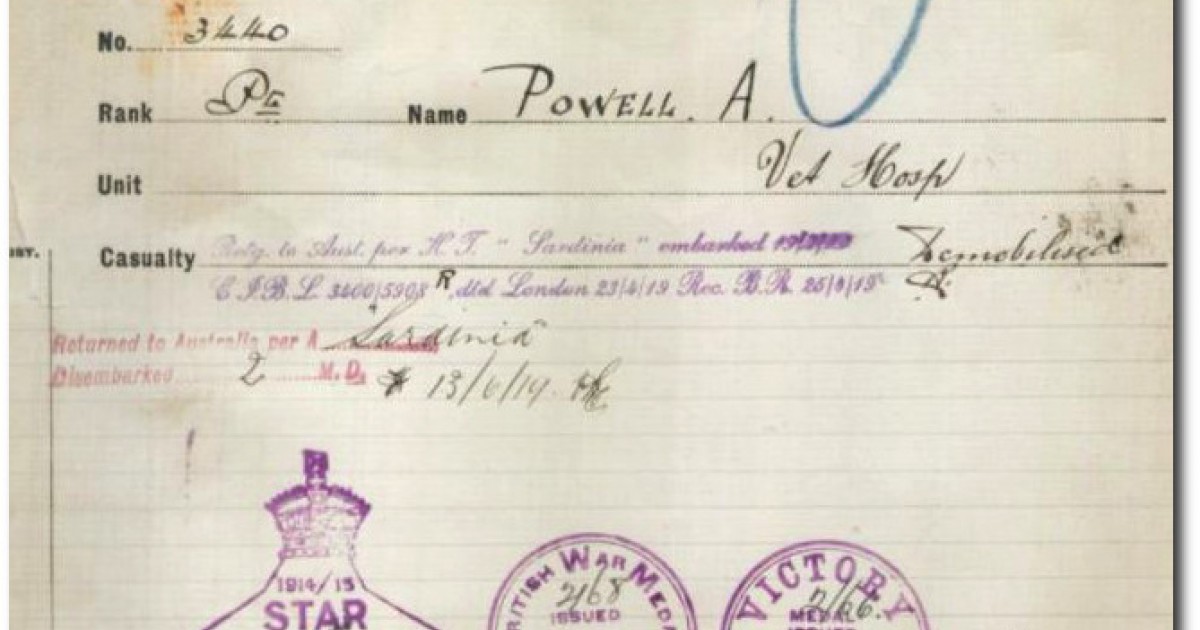 No. 3440
Rank Pte Name POWELL. A.
Unit Vet Hosp
Casualty Retg. to Aust. per H.T. "Sardinia" embarked Demobilised
C.I.B.L. 3400/5903 R, dtd London 23/4/19 Rec. B.R. 25/8/19
Returned to Australia per A "Sardinia"
Disembarked 2 M.D. 13/6/19.
1914/15
STAR
BRITISH WAR MEDA
2168
ISSUED
VICTORY
MEDAL